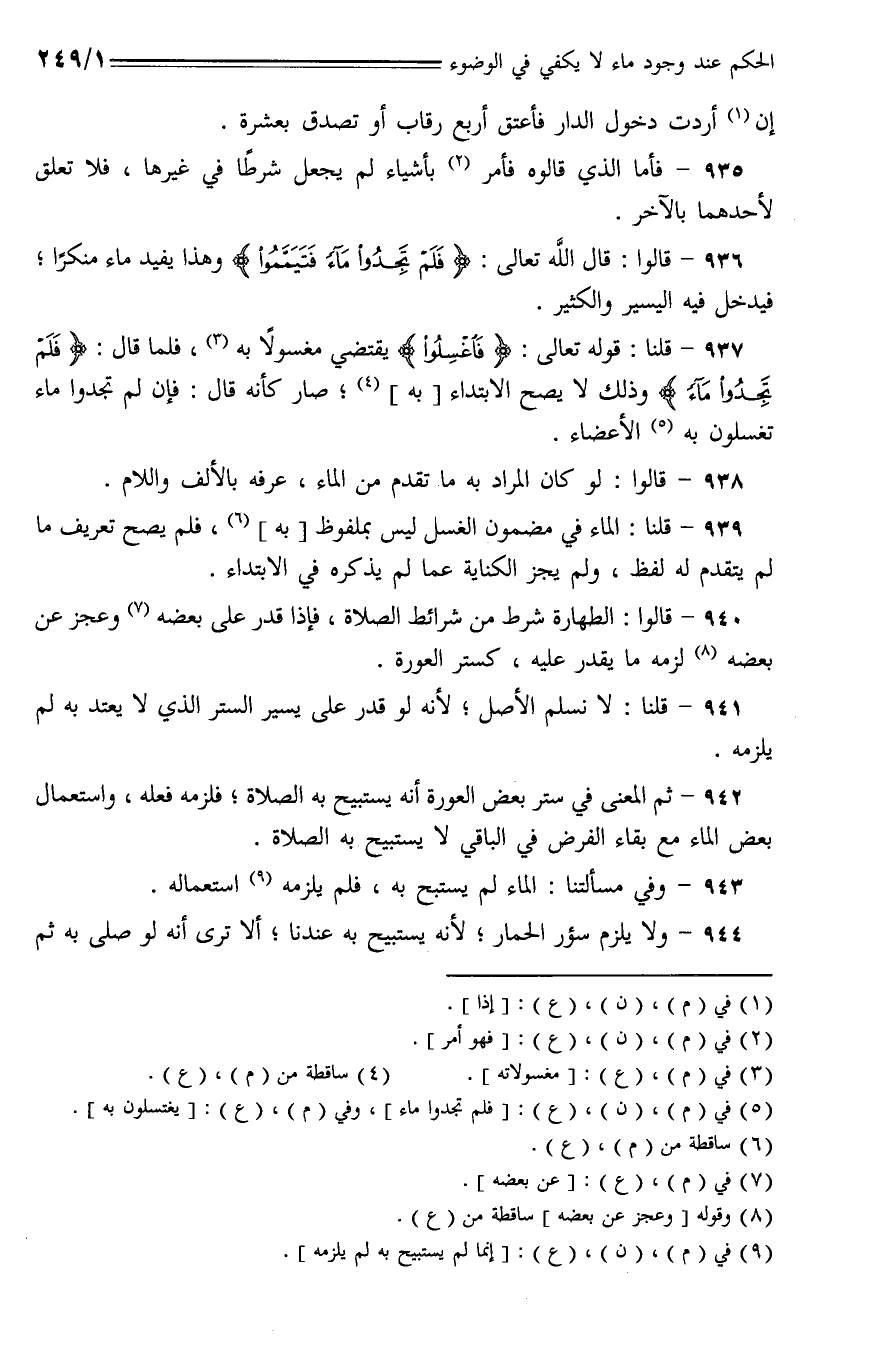 الحكم عند وجود ماء لا يكفي في الوضوء ٢٤٩/١
إن (١) أردت دخول الدار فأعتق أربع رقاب أو تصدق بعشرة .
٩٣٥ - فأما الذي قالوه فأمر (٢) بأشياء لم يجعل شرطًا في غيرها ، فلا تعلق
لأحدهما بالآخر .
٩٣٦ - قالوا : قال اللَّه تعالى : ﴿ فَلَمْ تَجِدُوا۟ مَآءً فَتَيَمَّمُوا۟ ﴾ وهذا يفيد ماء منكرًا ؛
فيدخل فيه اليسير والكثير .
٩٣٧ - قلنا : قوله تعالى : ﴿ فَٱغْسِلُوا۟ ﴾ يقتضي مغسولًا به (٣) ، فلما قال : ﴿ فَلَمْ
تَجِدُوا۟ مَآءً ﴾ وذلك لا يصح الابتداء [ به ] (٤) ؛ صار كأنه قال : فإن لم تجدوا ماء
تغسلون به (٥) الأعضاء .
٩٣٨ - قالوا : لو كان المراد به ما تقدم من الماء ، عرفه بالألف واللام .
٩٣٩ - قلنا : الماء في مضمون الغسل ليس بملفوظ [ به ] (٦) ، فلم يصح تعريف ما
لم يتقدم له لفظ ، ولم يجز الكناية عما لم يذكره في الابتداء .
٩٤٠ - قالوا : الطهارة شرط من شرائط الصلاة ، فإذا قدر على بعضه (٧) وعجز عن
بعضه (٨) لزمه ما يقدر عليه ، كستر العورة .
٩٤١ - قلنا : لا نسلم الأصل ؛ لأنه لو قدر على يسير الستر الذي لا يعتد به لم
يلزمه .
٩٤٢ - ثم المعنى في ستر بعض العورة أنه يستبيح به الصلاة ؛ فلزمه فعله ، واستعمال
بعض الماء مع بقاء الفرض في الباقي لا يستبيح به الصلاة .
٩٤٣ - وفي مسألتنا : الماء لم يستبح به ، فلم يلزمه (٩) استعماله .
٩٤٤ - ولا يلزم سؤر الحمار ؛ لأنه يستبيح به عندنا ؛ ألا ترى أنه لو صلى به ثم
(١) في ( م ) ، ( ن ) ، ( ع ) : [ إذا ] .
(٢) في ( م ) ، ( ن ) ، ( ع ) : [ فهو أمر ] .
(٣) في ( م ) ، ( ع ) : [ مغسولاته ] . (٤) ساقطة من ( م ) ، ( ع ) .
(٥) في ( م ) ، ( ن ) ، ( ع ) : [ فلم تجدوا ماء ] ، وفي ( م ) ، ( ع ) : [ يغتسلون به ] .
(٦) ساقطة من ( م ) ، ( ع ) .
(٧) في ( م ) ، ( ع ) : [ عن بعضه ] .
(٨) وقوله [ وعجز عن بعضه ] ساقطة من ( ع ) .
(٩) في ( م ) ، ( ن ) ، ( ع ) : [ إنما لم يستبيح به لم يلزمه ] .